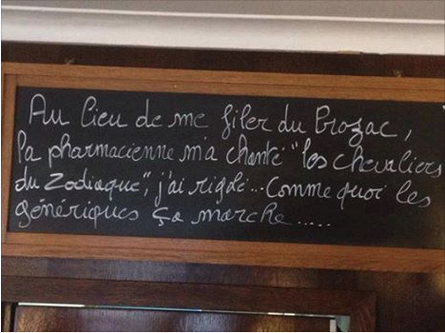 Au lieu de me filer du Prozac,
la pharmacienne m'a chanté "les chevaliers
du Zodiaque", j'ai rigolé... Comme quoi les
génériques ça marche.....